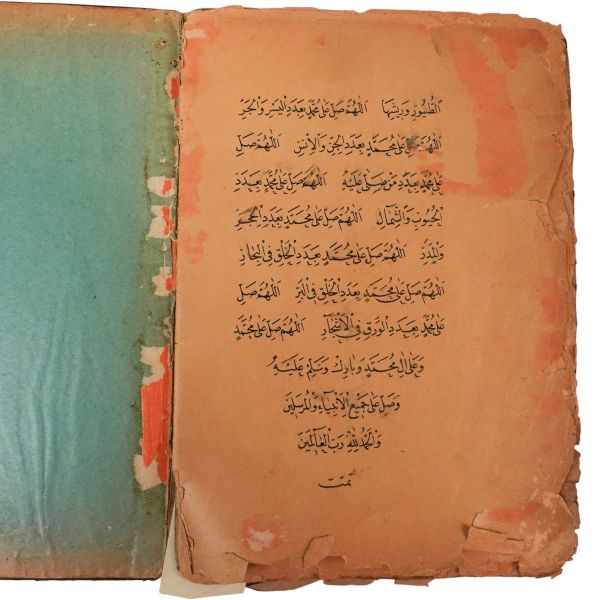 الطُّيُورِ وَرِيشِهَا اَللّٰهُمَّ صَلِّ عَلٰى مُحَمَّدٍ بِعَدَدِ الْيَسَرِ وَالْحَجَرِ
اَللّٰهُمَّ صَلِّ عَلٰى مُحَمَّدٍ بِعَدَدِ الْجِنِّ وَالْاِنْسِ اَللّٰهُمَّ صَلِّ
عَلٰى مُحَمَّدٍ بِعَدَدِ مَنْ صَلّٰى عَلَيْهِ اَللّٰهُمَّ صَلِّ عَلٰى مُحَمَّدٍ بِعَدَدِ
الْحُبُوبِ وَالشِّمَالِ اَللّٰهُمَّ صَلِّ عَلٰى مُحَمَّدٍ بِعَدَدِ الْحَجَرِ
وَالْمَدَرِ اَللّٰهُمَّ صَلِّ عَلٰى مُحَمَّدٍ بِعَدَدِ الْخَلْقِ فِى الْبِحَارِ
اَللّٰهُمَّ صَلِّ عَلٰى مُحَمَّدٍ بِعَدَدِ الْخَلْقِ فِى الْبَرِّ اَللّٰهُمَّ صَلِّ
عَلٰى مُحَمَّدٍ بِعَدَدِ الْوَرَقِ فِى الْاَشْجَارِ اَللّٰهُمَّ صَلِّ عَلٰى مُحَمَّدٍ
وَعَلٰى اٰلِ مُحَمَّدٍ وَبَارِكْ وَسَلِّمْ عَلَيْهِ
وَصَلِّ عَلٰى جَمِيعِ الْاَنْبِيَاءِ وَالْمُرْسَلِينَ
وَالْحَمْدُ لِلّٰهِ رَبِّ الْعَالَمِينَ
تمت